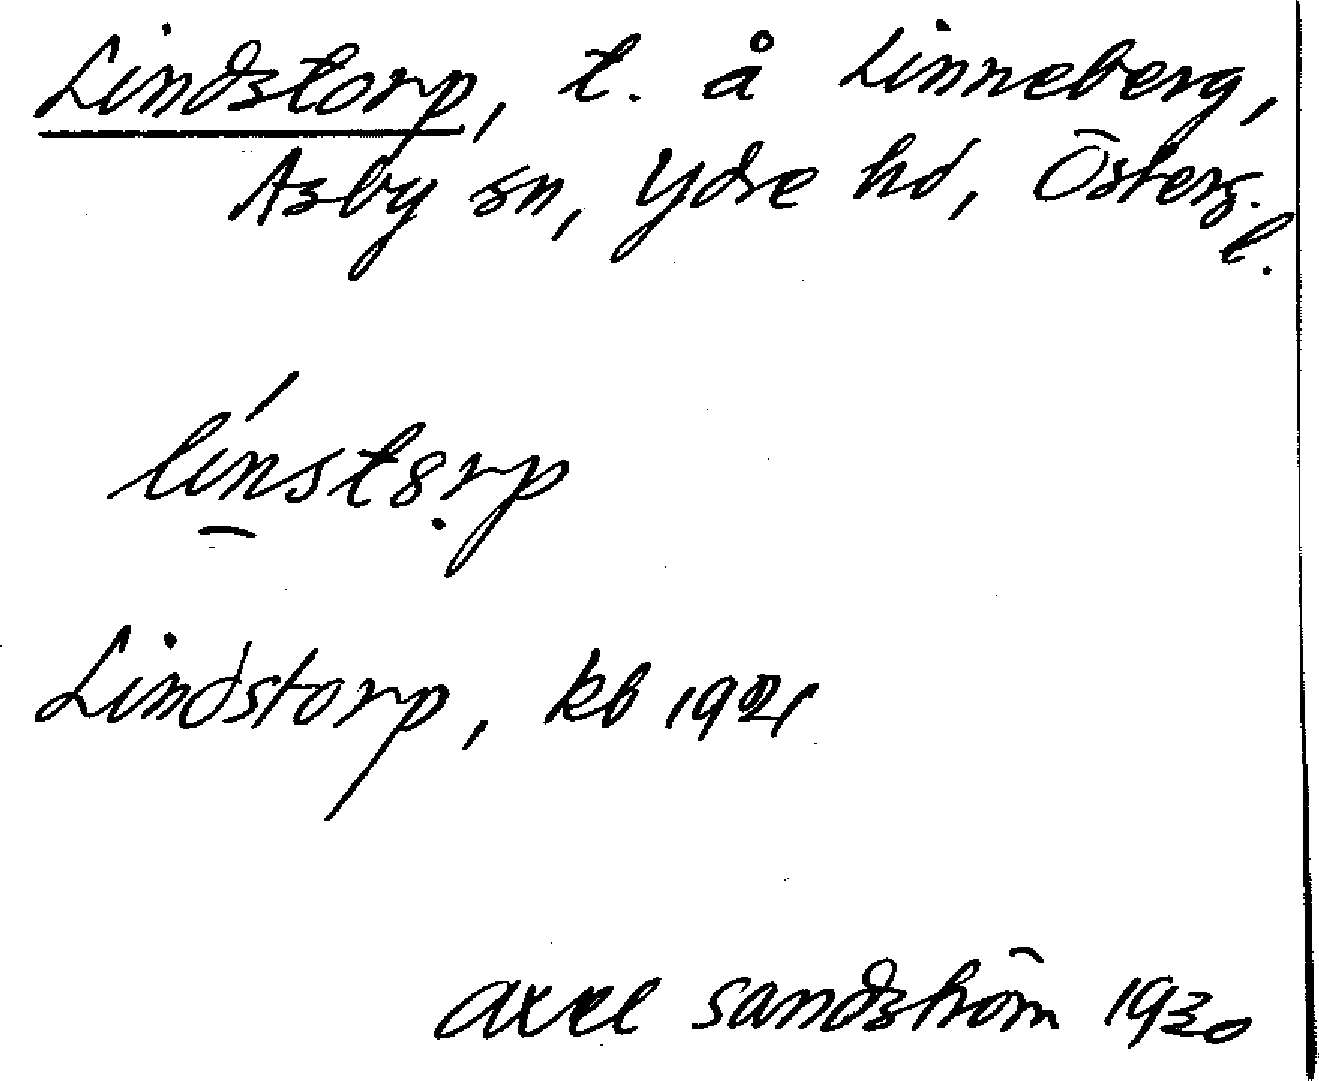 Lindstorp, t. å Linneberg,
Asby sn, Ydre hd, Österg.
l.
línsto̤rp
Lindstorp, kb 1921
Axel Sandström 1930